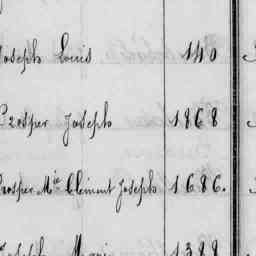 Joseph Louis 140
Prosper Joseph 1868
Prosper Mie Clément Joseph 1686.
Joseph Marie 1388